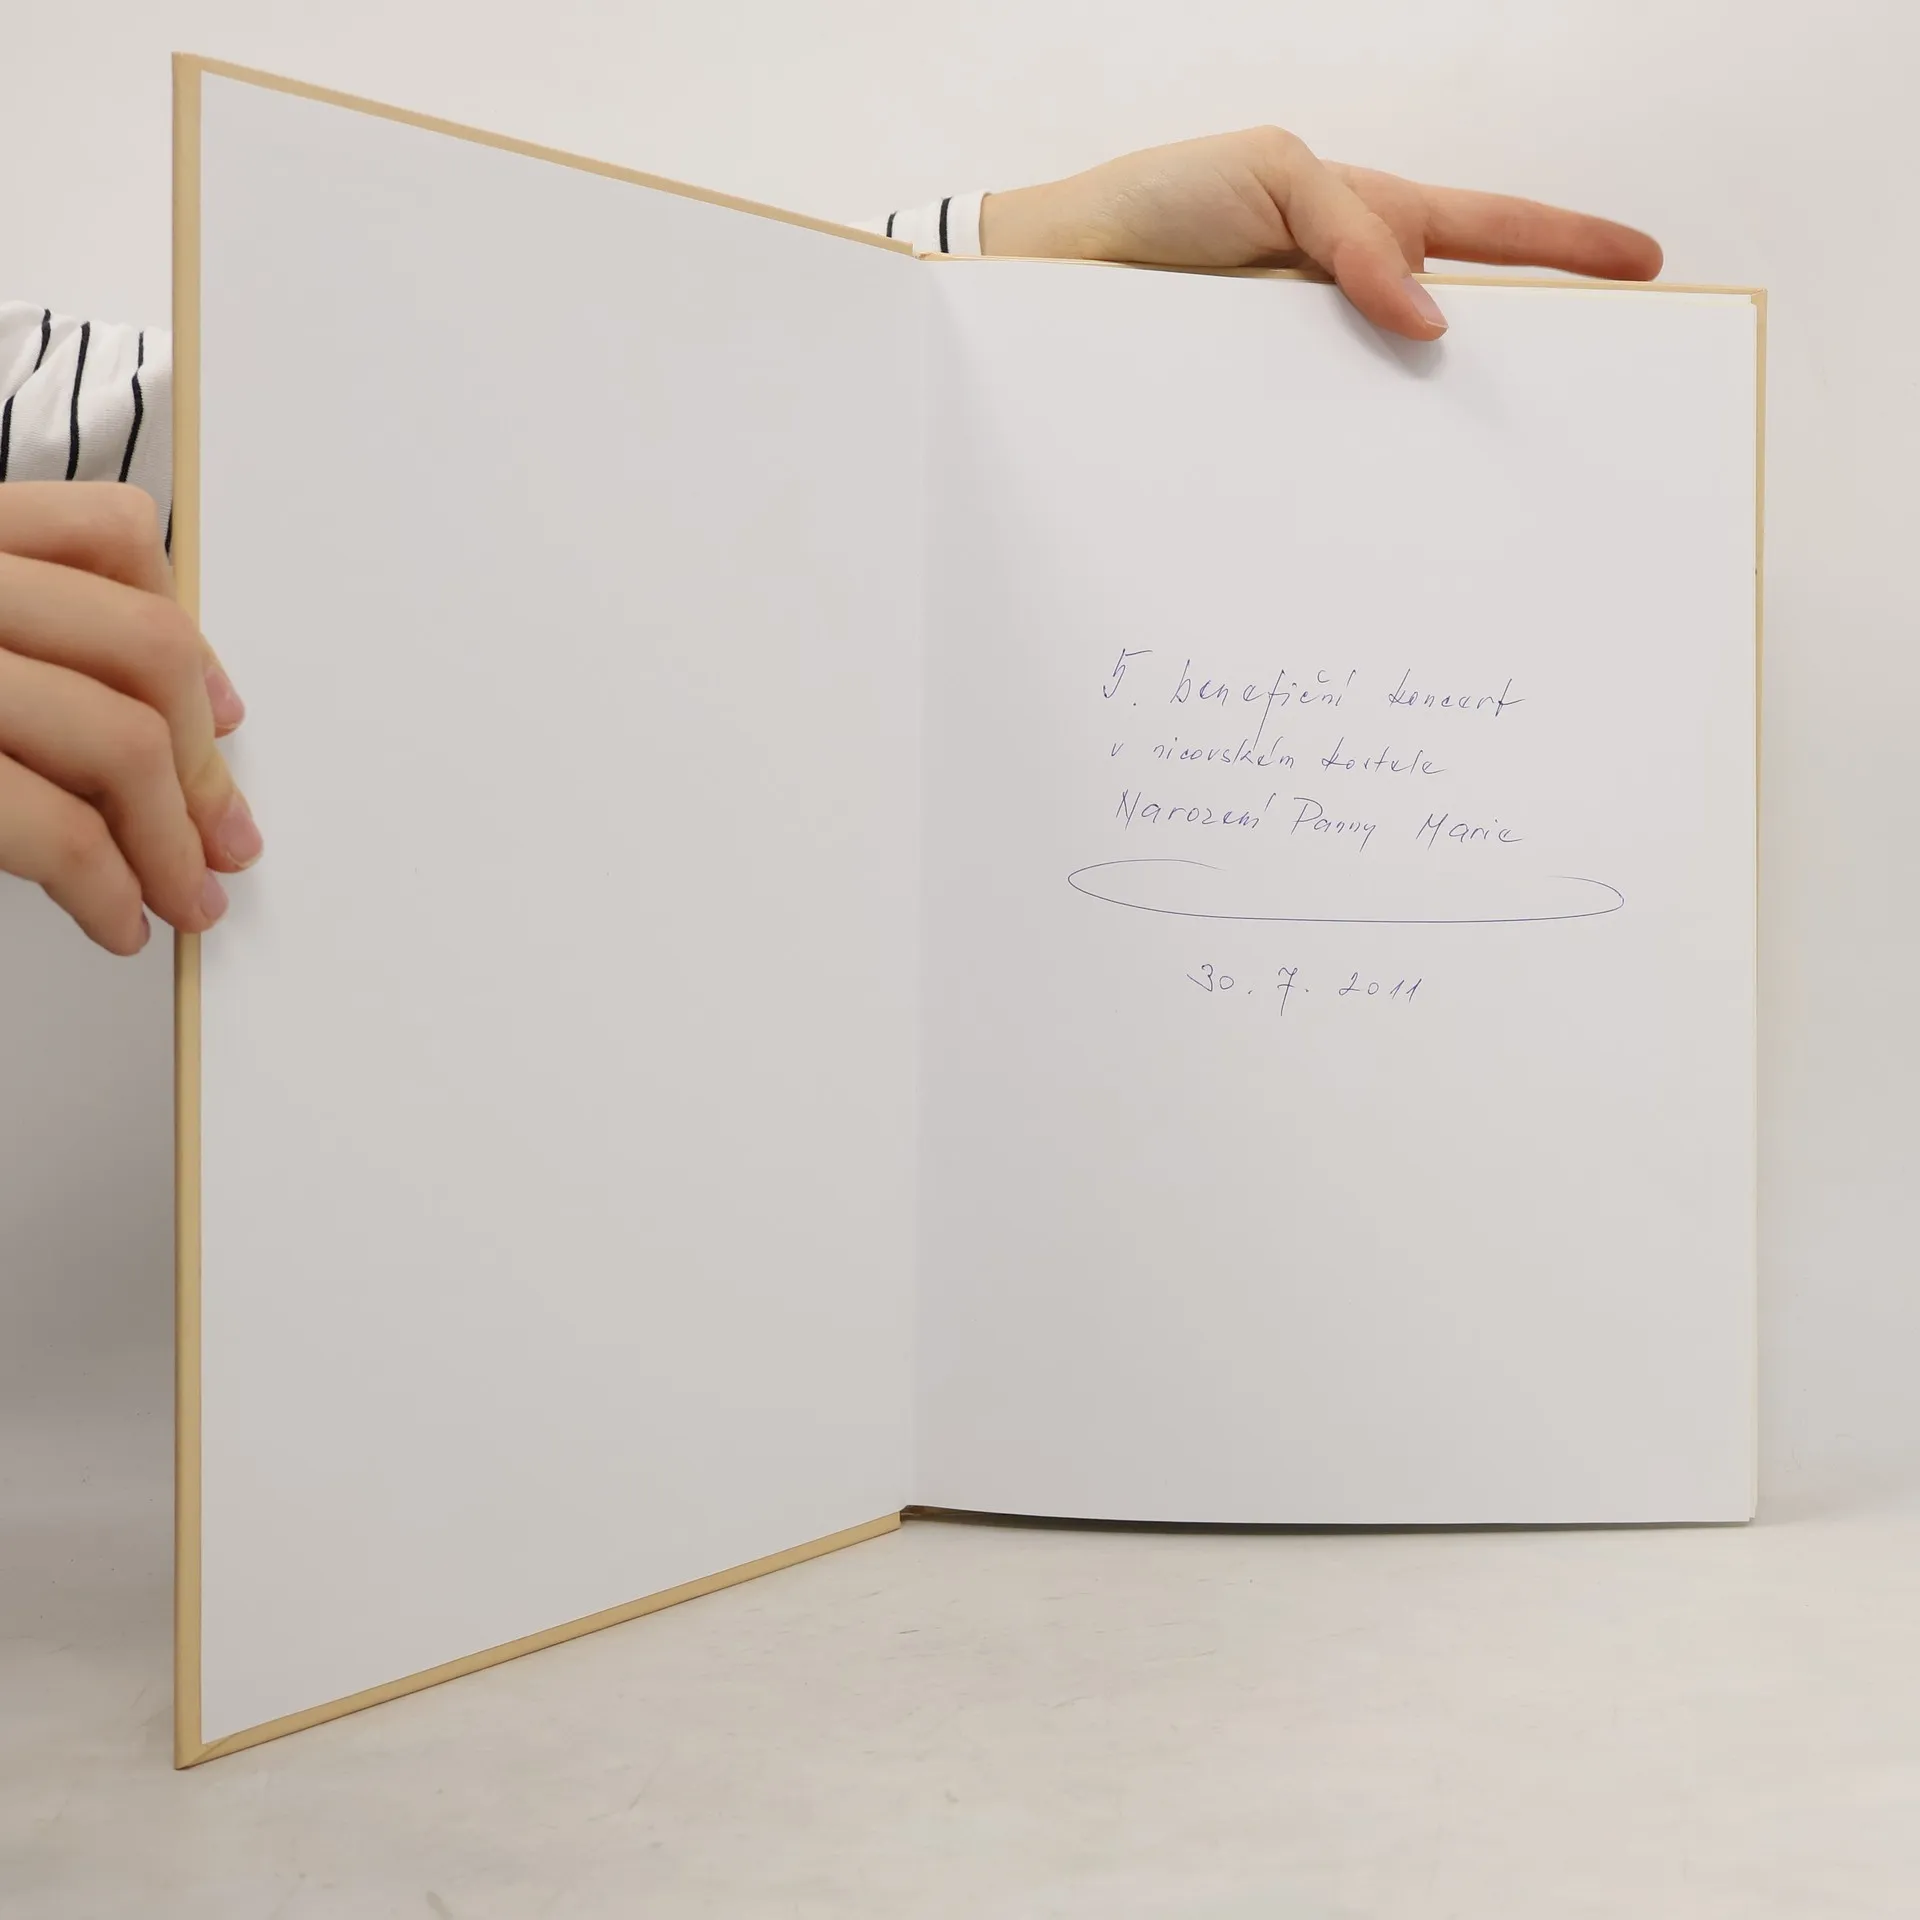 5. benefiční koncert
v nicovském kostele
Narození Panny Marie
30. 7. 2011